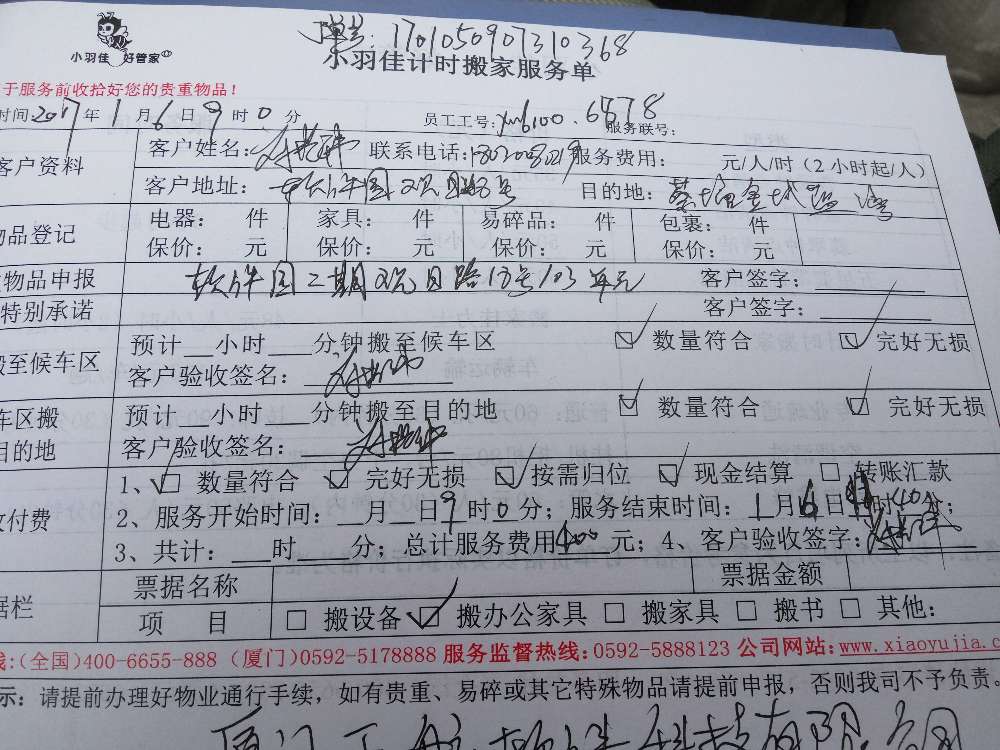 单号:1701050907310368
小羽佳 好管家
小羽佳计时搬家服务单
于服务前收拾好您的贵重物品!
时间2017年1月6日9时0分 员工工号:xm6100.6878 服务联号:
客户资料 客户姓名: 联系电话: 服务费用: 元/人/时(2小时起/人)
客户地址: 软件园观日路 号 目的地:蔡塘金域蓝湾
物品登记 电器: 件 家具: 件 易碎品: 件 包裹: 件
保价: 元 保价: 元 保价: 元 保价: 元
物品申报 软件园二期观日路18号103单元 客户签字:
特别承诺 客户签字:
搬至候车区 预计 小时 分钟搬至候车区 ☑ 数量符合 ☑ 完好无损
客户验收签名:
车区搬目的地 预计 小时 分钟搬至目的地 ☑ 数量符合 ☑ 完好无损
客户验收签名:
1、☑ 数量符合 ☑ 完好无损 ☑ 按需归位 ☑ 现金结算 □ 转账汇款
付费 2、服务开始时间: 月 日9时0分;服务结束时间:1月6日11时40分;
3、共计: 时 分;总计服务费用400元;4、客户验收签字:
据栏 票据名称 票据金额
项 目 □ 搬设备 ☑ 搬办公家具 □ 搬家具 □ 搬书 □ 其他:
线:(全国)400-6655-888 (厦门)0592-5178888 服务监督热线:0592-5888123 公司网站:www.xiaoyujia.c
示:请提前办理好物业通行手续,如有贵重、易碎或其它特殊物品请提前申报,否则我司不予负责。